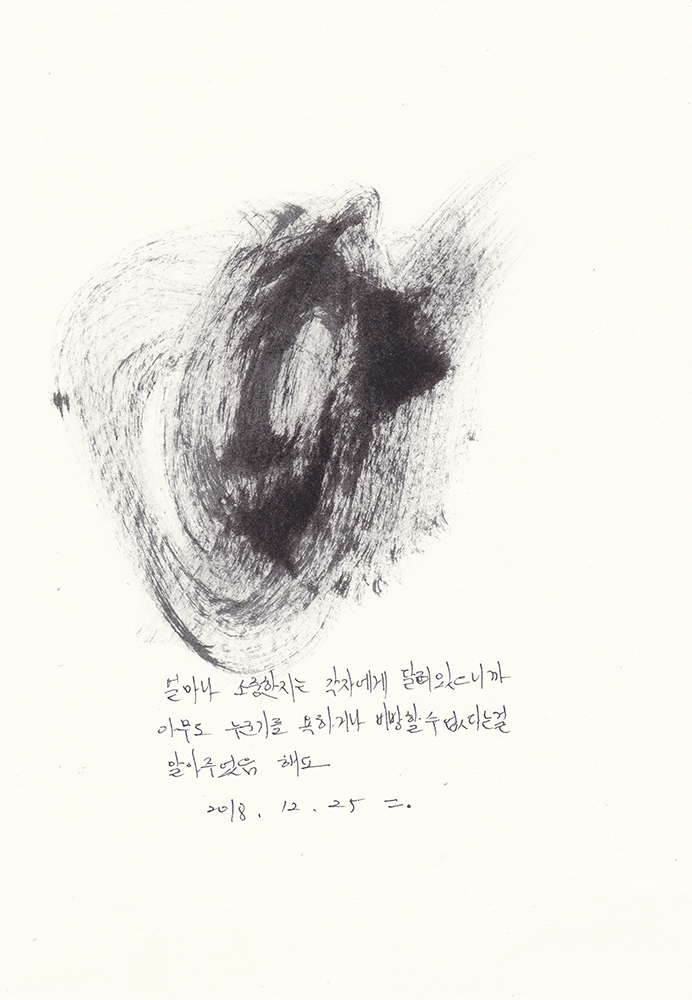 얼마나 소중한지는 각자에게 달려있으니까
아무도 누군가를 욕하거나 비방할 수 없다는걸
알아주었음 해요
2018. 12. 25 二.